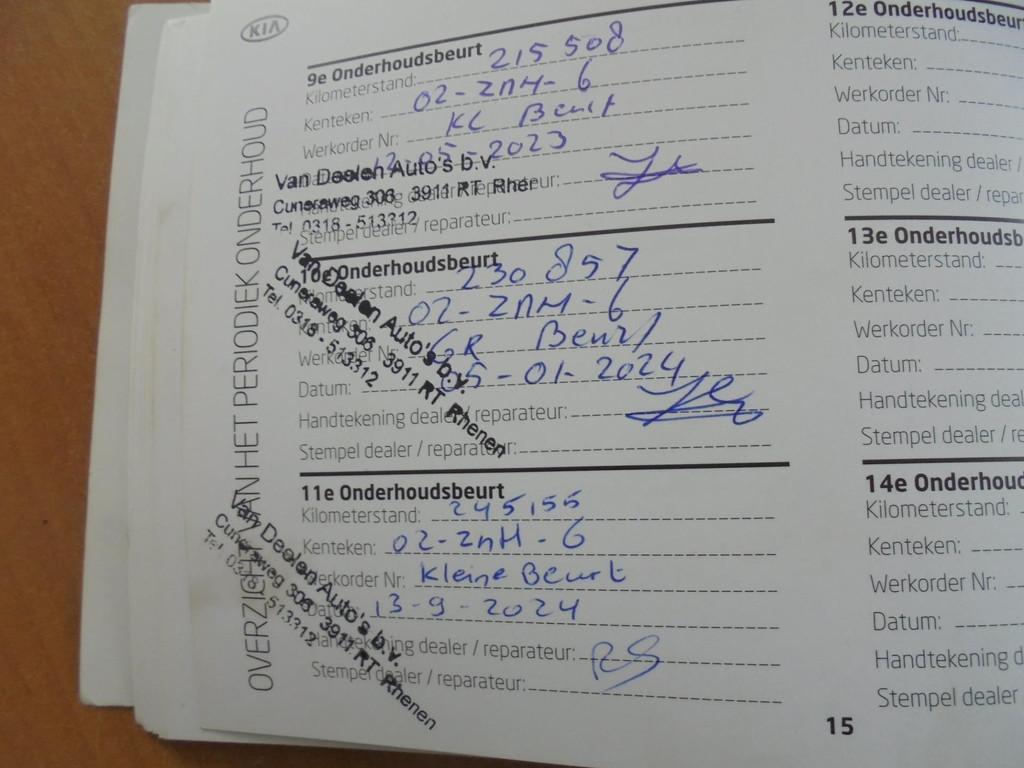 KIA
OVERZICHT VAN HET PERIODIEK ONDERHOUD
9e Onderhoudsbeurt
Kilometerstand: 215 508
Kenteken: 02-ZNH-6
Werkorder Nr: KL Beurt
12-05-2023
Handtekening dealer / reparateur:
Stempel dealer / reparateur:
Van Deelen Auto's b.v.
Cuneraweg 306 3911 RT Rhen
Tel. 0318 - 513312
10e Onderhoudsbeurt
Kilometerstand: 230 857
Kenteken: 02-ZNH-6
Werkorder Nr: GR Beurt
Datum: 05-01-2024
Handtekening dealer / reparateur:
Stempel dealer / reparateur:
Van Deelen Auto's b.v.
Cuneraweg 306 3911 RT Rhenen
Tel. 0318 - 513312
11e Onderhoudsbeurt
Kilometerstand: 245,155
Kenteken: 02-ZNH-6
Werkorder Nr: Kleine Beurt
Datum: 13-9-2024
Handtekening dealer / reparateur:
Stempel dealer / reparateur:
Van Deelen Auto's b.v.
Cuneraweg 306 3911 RT Rhenen
Tel. 0318 - 513312
12e Onderhoudsbeur
Kilometerstand:
Kenteken:
Werkorder Nr:
Datum:
Handtekening dealer /
Stempel dealer / repar
13e Onderhoudsb
Kilometerstand:
Kenteken:
Werkorder Nr:
Datum:
Handtekening deal
Stempel dealer / re
14e Onderhoud
Kilometerstand:
Kenteken:
Werkorder Nr:
Datum:
Handtekening d
Stempel dealer
15